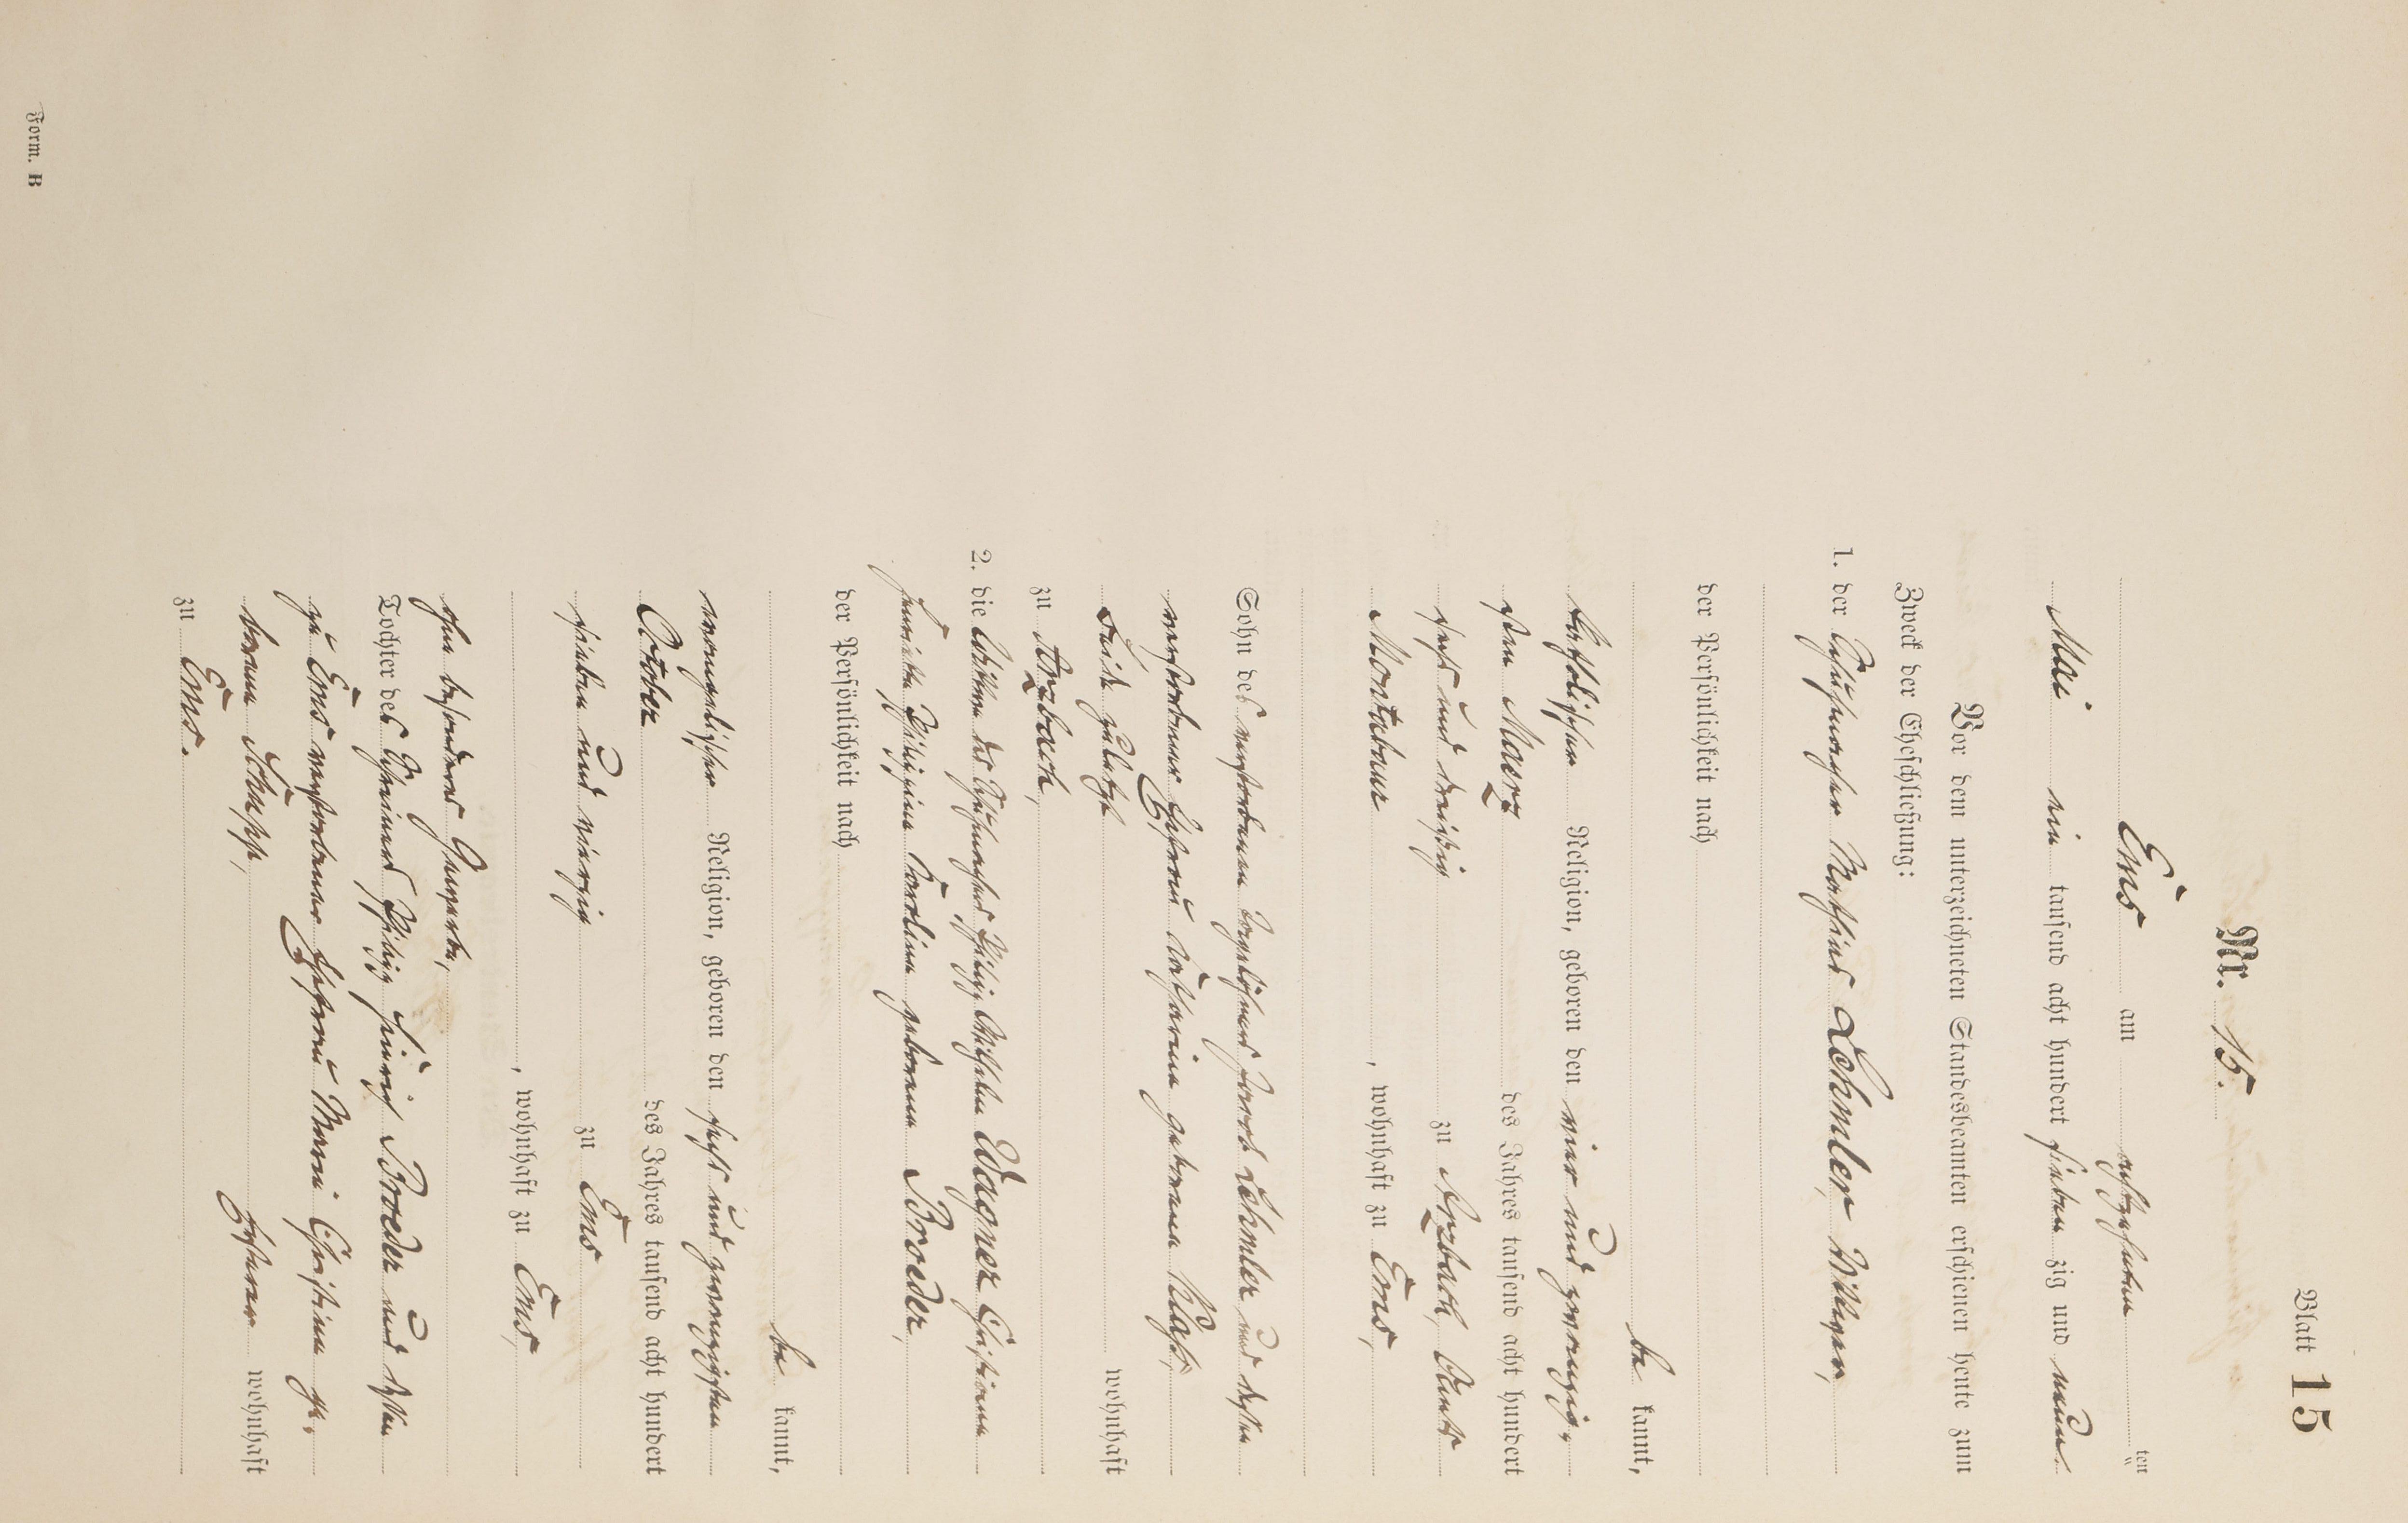 Blatt 15
Nr. 15.
Ems am achtzehnten ten
Mai ein tausend acht hundert sieben zig und neun
Vor dem unterzeichneten Standesbeamten erschienen heute zum
Zweck der Eheschließung:
1. der Schuhmacher Mathias Lehmler, Wittwer,
der Persönlichkeit nach
be kannt,
katholischer Religion, geboren den vier und zwanzig-
sten Maerz des Jahres tausend acht hundert
sechs und dreißig zu Arzbach, Amts
Montabaur, wohnhaft zu Ems,
Sohn des verstorbenen Jacob Lehmler und dessen
verstorbener Ehefrau Catharina geborene
Beide zuletzt wohnhaft
zu Arzbach,
2. die Wittwe des Schuhmachers Philipp Wilhelm Wagner Christiane
Philippine Karoline geborene Broeder,
der Persönlichkeit nach
be kannt,
evangelischer Religion, geboren den sechs und zwanzigsten
October des Jahres tausend acht hundert
sieben und vierzig zu Ems
, wohnhaft zu Ems,
ohne besonderes Gewerbe,
Tochter des Schreiners Philipp Heinrich Broeder und dessen
zu Ems verstorbener Ehefrau Marie Christine ge-
borene Schupp, Ersterer wohnhaft
zu Ems.
Form. B